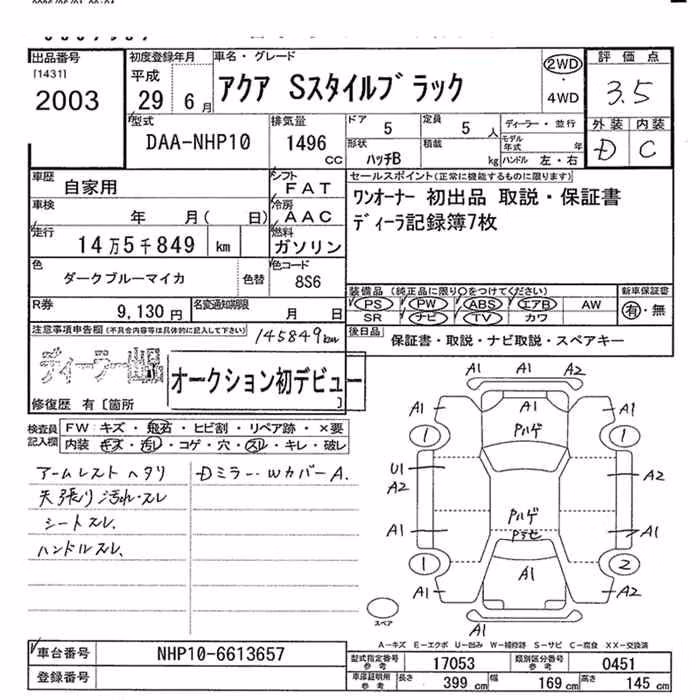 出品番号
[1431]
2003
初度登録年月
平成
29 6月
車名・グレード
アクア Sスタイルブラック
2WD
・
4WD
評価点
3.5
外装 内装
D C
型式
DAA-NHP10
排気量
1496
cc
ドア
5
定員
5 人
ディーラー・並行
形状
ハッチB
積載
kg
モデル年式 年
ハンドル 左・右
車歴
自家用
シフト
FAT
車検
年 月( 日)
冷房
AAC
走行
14万5千849 km
燃料
ガソリン
色
ダークブルーマイカ
色替
色コード
8S6
R券
9,130円
名変通知期限
月 日
セールスポイント(正常に機能するものに限ります)
ワンオーナー 初出品 取説・保証書
ディーラ記録簿7枚
装備品(純正品に限り○をつけてください)
新車保証書
PS PW ABS エアB AW
SR ナビ TV カワ
有・無
後日品
保証書・取説・ナビ取説・スペアキー
注意事項申告欄(不具合内容等は具体的に記入して下さい)
145849km
ディーラー
オークション初デビュー
修復歴 有[箇所 ]
検査員
記入欄
FW: キズ・飛石・ヒビ割・リペア跡・×要
内装 キズ・汚レ・コゲ・穴・スレ・キレ・破レ
アームレストヘタリ
天張り汚れ・スレ
シートスレ、
ハンドルスレ、
Dミラー・WカバーA.
A1 A1 A2
A1 A1 A1
Pハゲ
1 1
U1
A2
A2
Pハゲ
Pラセ
A1 A1
1 2
A1
A1 A1
スペア
A-キズ E-エクボ U-凹み W-補修跡 S-サビ C-腐食 XX-交換済
車台番号
NHP10-6613657
登録番号
型式指定番号
参考
17053
類別区分番号
参考
0451
車庫証明用
参考
長さ 399 cm
幅 169 cm
高さ 145 cm